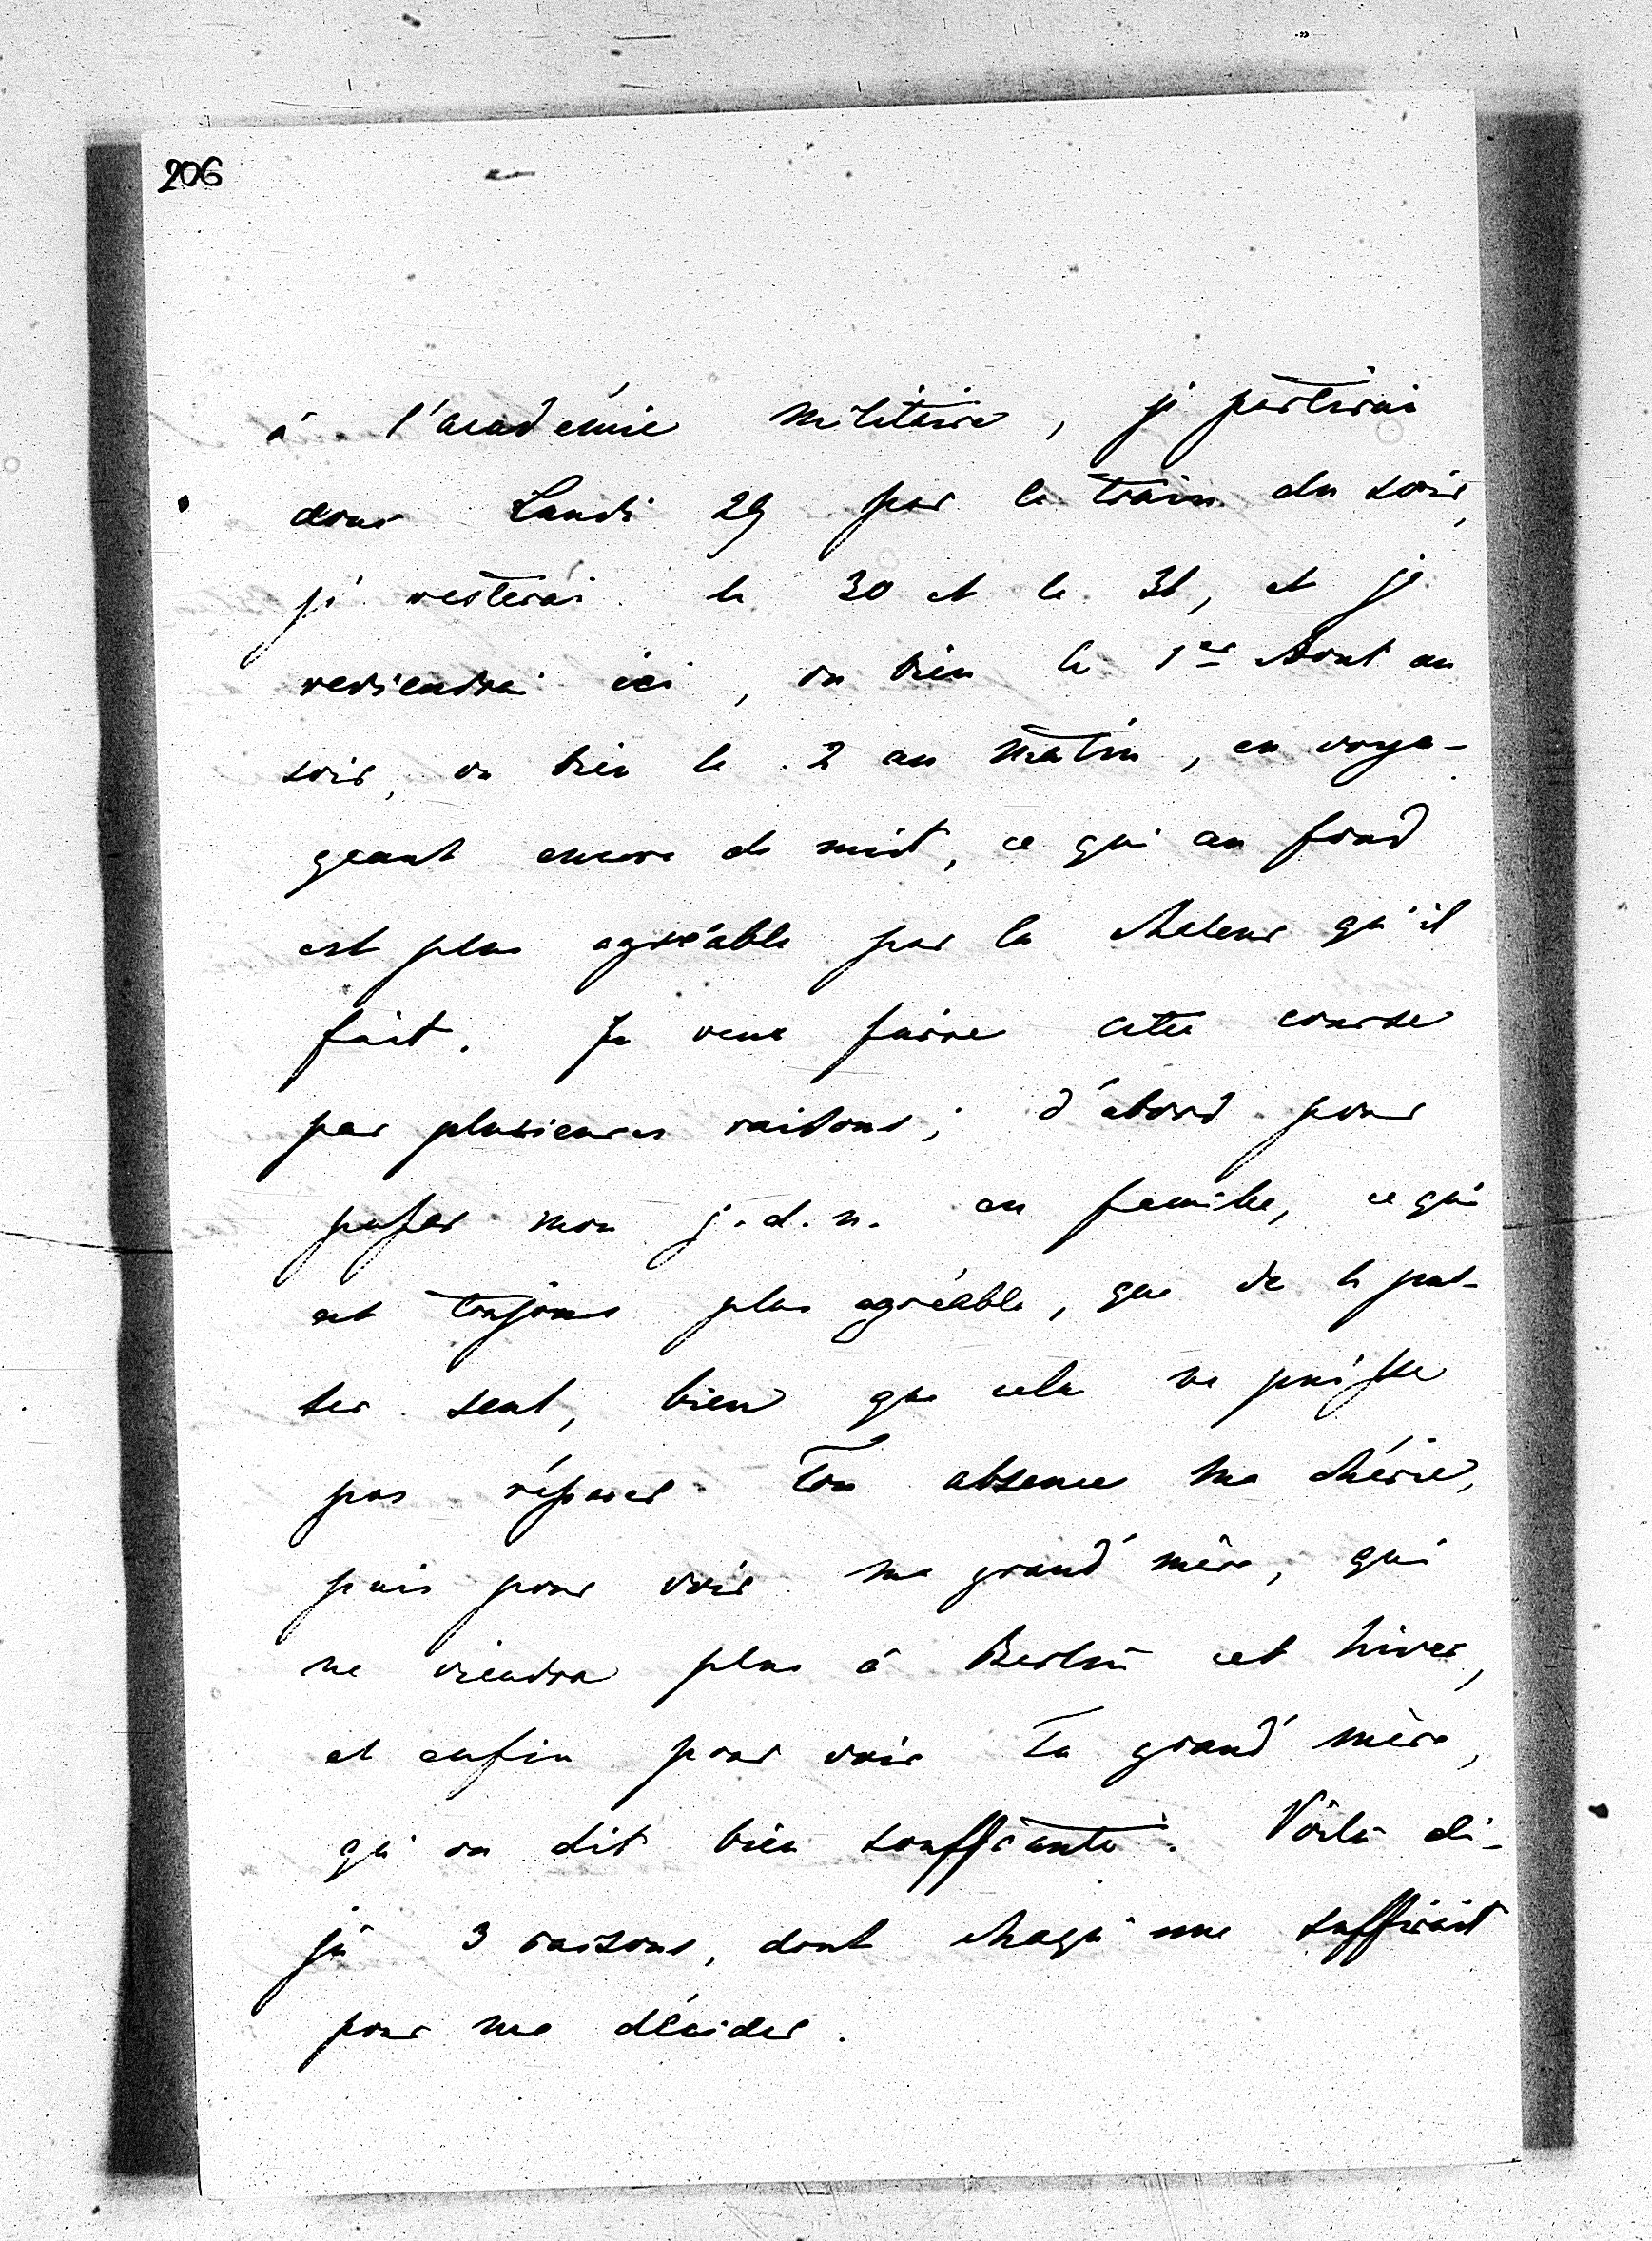 206
à l'académie militaire, je partirai
donc Lundi 29 par le train du soir,
j'y resterai le 30 et le 31, et je
reviendrai ici, ou bien le 1er Aout au
soir, ou bien le 2 au matin, en voya-
geant encore de nuit, ce qui au fond
est plus agréable par la chaleur qu'il
fait. Je veux faire cette course
par plusieures raisons; d'abord pour
passer mon j.d.n. en famille, ce qui
est toujours plus agréable, que de le pas-
ser seul, bien que cela ne puisse
pas réparer Ton absence ma chérie,
puis pour voir ma grand'mère, qui
ne viendra plus à Berlin cet hiver,
et enfin pour voir Ta grand'mère,
qu'on dit bien souffrante. Voilà dé-
jà 3 raisons, dont chaqu'une suffirait
pour me décider.